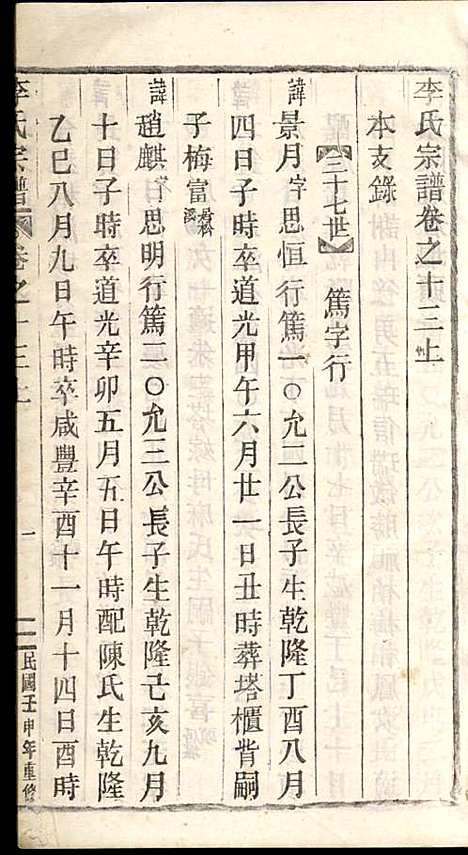 李氏宗譜卷之十三上
本支錄
【三十七世】　篤字行
諱景月字思恒行篤一〇允二公長子生乾隆丁酉八月
四日子時卒道光甲午六月廿一日丑時葬塔櫃背嗣
子梅富
諱趙麒字思明行篤二〇允三公長子生乾隆己亥九月
十日子時卒道光辛卯五月五日午時配陳氏生乾隆
乙巳八月九日午時卒咸豐辛酉十一月十四日酉時
李氏宗譜　卷之十三上　一　民國壬申年重修